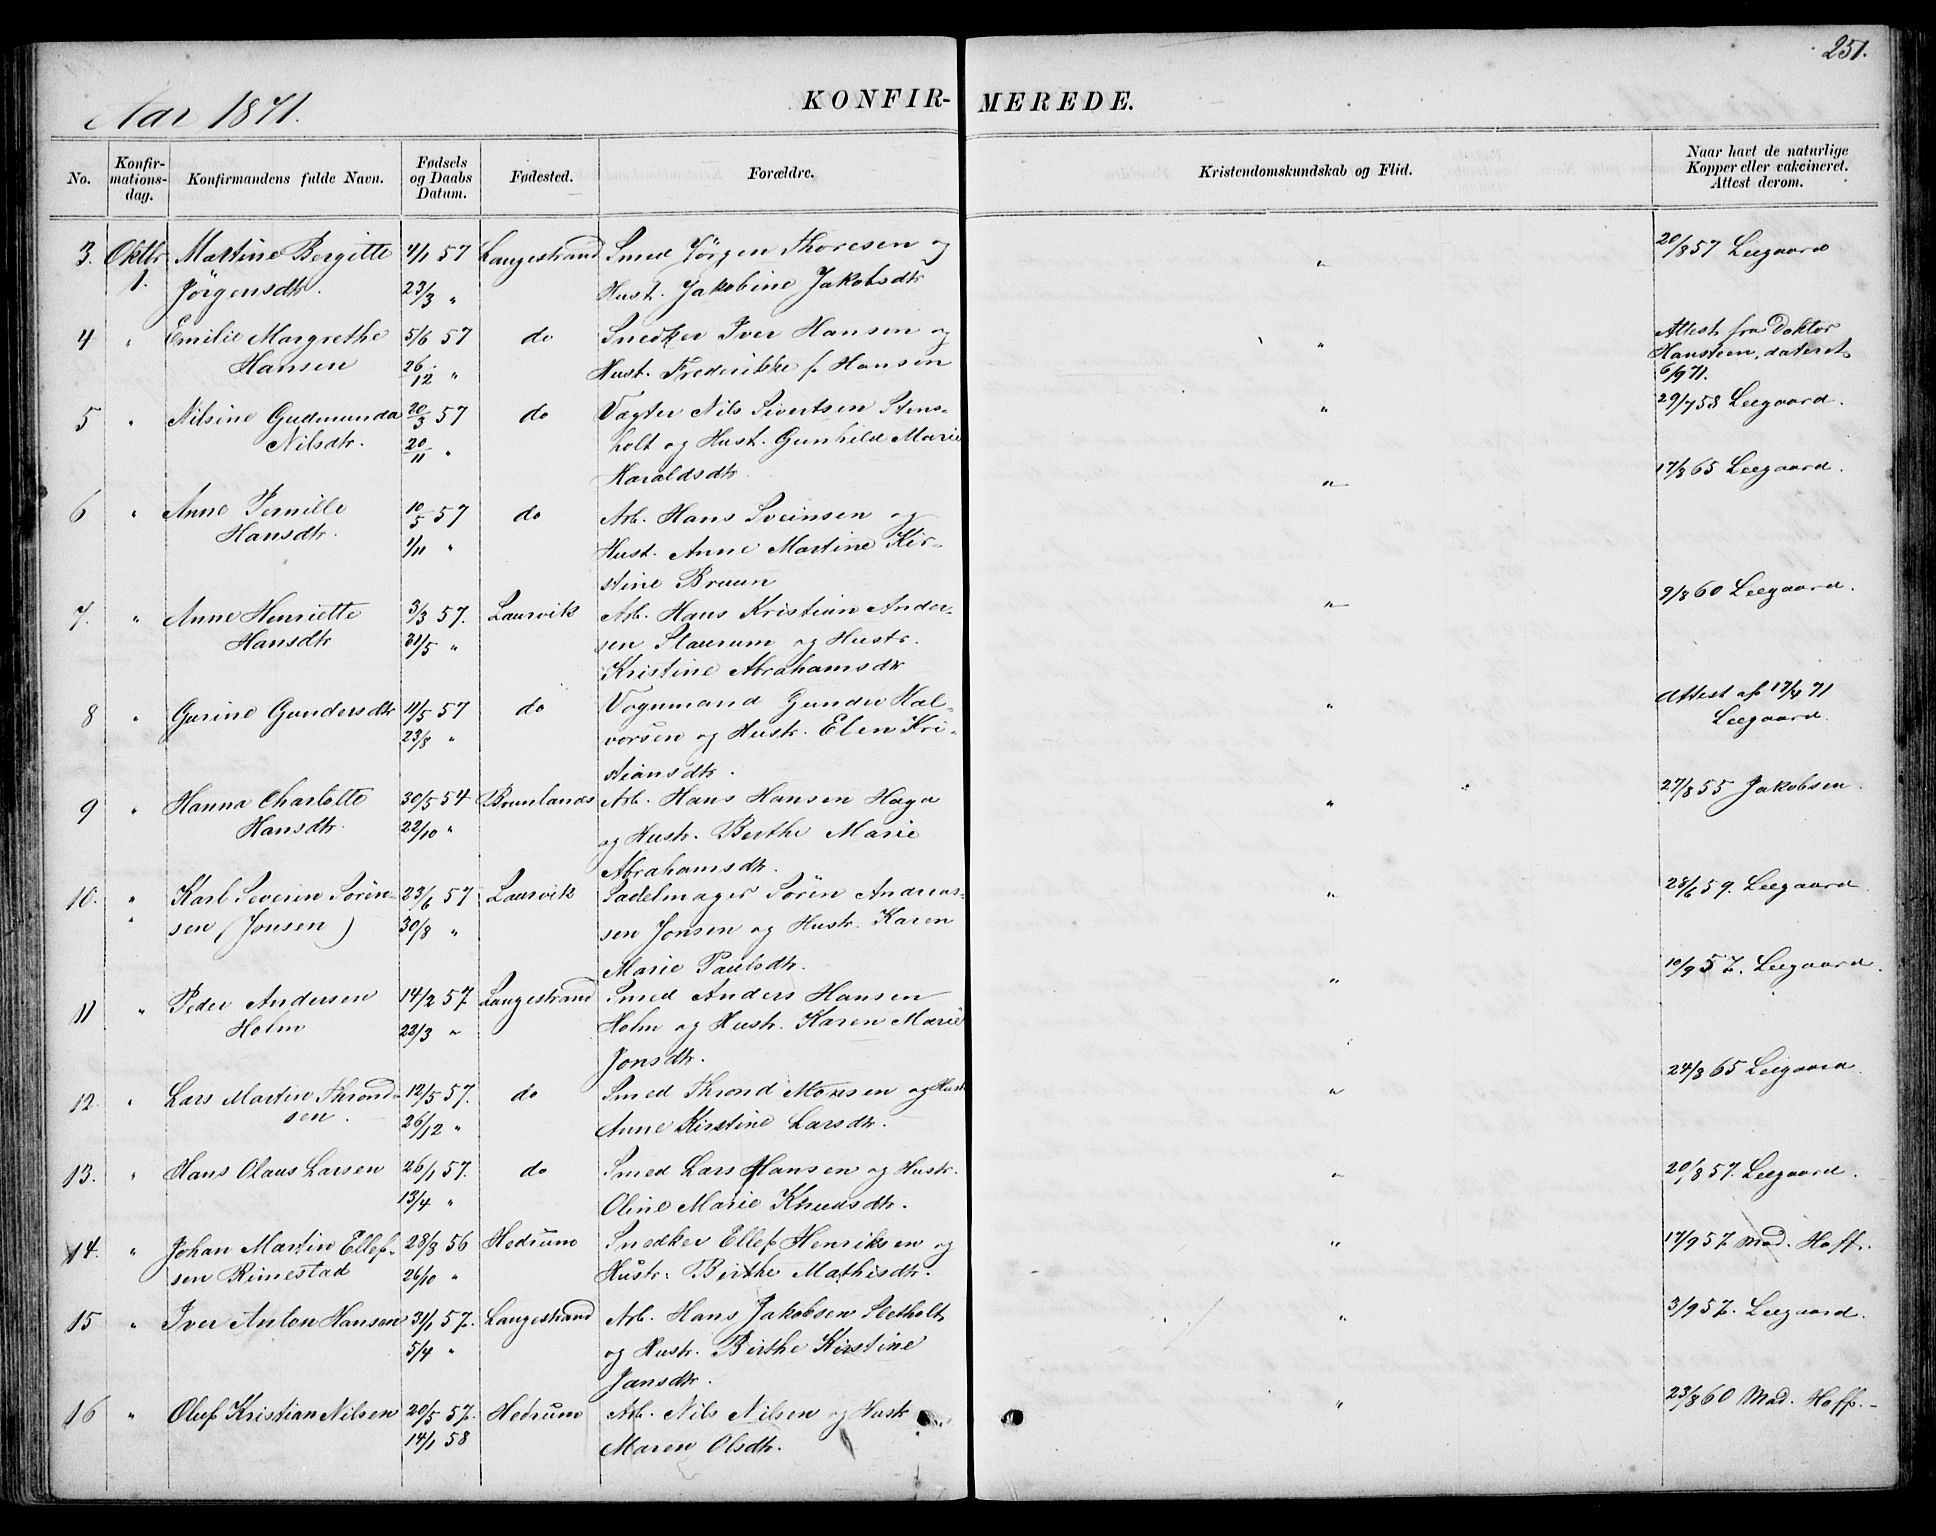 251.
Aar 1871.
KONFIR-
MEREDE.
No.
Konfir-
mations-
dag.
Konfirmandens fulde Navn.
Fødsels
og Daabs
Datum.
Fødested.
Forældre.
Kristendomskundskab og Flid.
Naar havt de naturlige
Kopper eller vakcineret.
Attest derom.
3. Oktbr Martine Bergitte 4/1 57 Langestrand Smed Jörgen Thoresen og " 20/8 57 Leegaard
1. Jörgensdtr. 23/3 " Hust. Jakobine Jakobsdtr
4 " Emilie Margrethe 5/6 57 do Snedker Iver Hansen og " Attest fra Doktor
Hansen 26/12 " Hust. Frederikke f. Hansen Hansteen, dateret
6/9 71.
5 " Nilsine Gudmunda 20/3 57 do Vagter Nils Sivertsen Stens- " 29/7 58 Leegaard.
Nilsdtr. 20/11 " holt og Hust. Gunhild Marie
Haraldsdtr.
6 " Anne Pernille 10/5 57 do Arb. Hans Sveinsen og " 17/8 65 Leegaard.
Hansdtr. 1/11 " Hust. Anne Martine Kir-
stine Bruun
7. " Anne Henriette 3/3 57. Laurvik Arb. Hans Kristian Ander- " 9/8 60 Leegaard.
Hansdtr 31/5 " sen Staurum og Hustr.
Kristine Abrahamsdtr
8 " Gurine Gundersdtr 11/5 57 do Vognmand Gunder Hal- " Attest af 17/4 71
23/8 " vorsen og Hustr. Elen Kri- Leegaard.
stiansdtr.
9 " Hanna Charlotte 30/5 54 Brunlanæs Arb. Hans Hansen Haga " 27/8 55 Jakobsen.
Hansdtr. 22/10 " og Hustr. Berthe Marie
Abrahamsdtr.
10. " Karl Severin Sören- 23/6 57 Laurvik Sadelmager Sören Andreas- " 28/6 59. Leegaard
" sen (Jonsen) 30/8 " sen Jonsen og Hustr. Karen
Marie Paulsdtr.
11 " Peder Andersen 14/2 57. Langestrand Smed Anders Hansen " 10/9 57. Leegaard.
Holm 22/3 " Holm og Hustr. Karen Marie
Jonsdtr.
12. " Lars Martin Thrond- 12/5 57. do Smed Thrond Monsen og Hust. " 24/8 65 Leegaard.
sen. 26/12 " Anne Kirstine Larsdtr.
13. " Hans Olaus Larsen 26/1 57. do Smed Lars Hansen og Hustr. " 20/8 57. Leegaard.
13/4 " Oline Marie Knudsdtr.
14. " Johan Martin Ellef- 28/8 56 Hedrum Snedker Ellef Henriksen og " 17/9 57. Mad. Hoff.
sen Rimestad 26/10 " Hustr. Birthe Mathisdtr.
15 " Iver Anton Hansen 31/1 57. Langestrand Arb. Hans Jakobsen Sletholt " 3/9 57. Leegaard.
5/4 " og Hustr. Birthe Kirstine
Jansdtr.
16 " Oluf Kristian Nilsen 20/5 57. Hedrum Arb. Nils Nilsen og Hustr " 23/8 60 Mad. Hoff.
14/1 58 Maren Olsdtr.